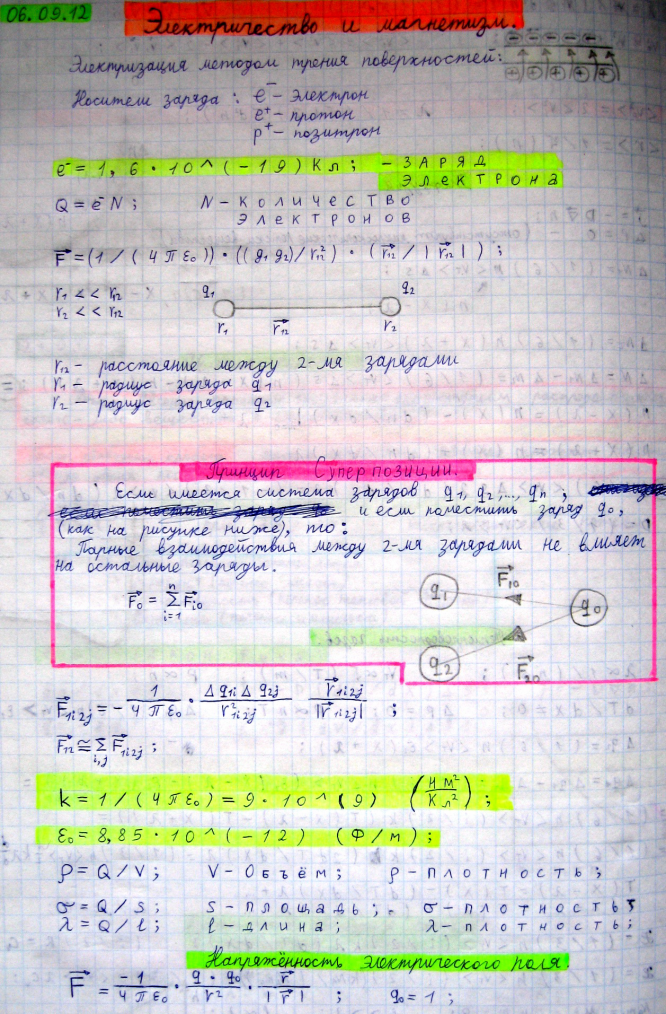 06.09.12
Электричество и магнетизм.
Электризация методом трения поверхностей:
Носители заряда : e⁻ – электрон
e⁺ – протон
p⁺ – позитрон
e⁻ = 1,6 · 10^(-19) Кл; – ЗАРЯД
ЭЛЕКТРОНА
Q = e⁻N; N – КОЛИЧЕСТВО
ЭЛЕКТРОНОВ
F⃗ = (1/(4πε₀)) · ((q₁ q₂)/r₁₂²) · (r⃗₁₂/|r⃗₁₂|);
r₁ << r₁₂
r₂ << r₁₂
q₁ q₂
r₁ r⃗₁₂ r₂
r₁₂ – расстояние между 2-мя зарядами
r₁ – радиус заряда q₁
r₂ – радиус заряда q₂
Принцип Суперпозиции.
Если имеется система зарядов q₁, q₂, .., qₙ ;
и если поместить заряд q₀,
(как на рисунке ниже), то:
Парные взаимодействия между 2-мя зарядами не влияет
на остальные заряды.
F⃗₀ = Σⁿᵢ₌₁ F⃗ᵢ₀
q₁ F⃗₁₀ q₀
q₂ F⃗₂₀
F⃗₁ᵢ₂ⱼ = - 1/(4πε₀) · (Δq₁ᵢ Δq₂ⱼ)/r²₁ᵢ₂ⱼ r⃗₁ᵢ₂ⱼ/|r⃗₁ᵢ₂ⱼ| ;
F⃗₁₂ ≅ Σᵢ,ⱼ F⃗₁ᵢ₂ⱼ ;
k = 1/(4πε₀) = 9 · 10^(9) (Н м²/Кл²) ;
ε₀ = 8,85 · 10^(-12) (Ф/м) ;
ρ = Q/V; V – Объём; ρ – плотность;
σ = Q/S; S – площадь; σ – плотность;
λ = Q/l; l – длина; λ – плотность;
Напряжённость электрического поля.
F⃗ = -1/(4πε₀) · (q · q₀)/r² · r⃗/|r⃗| ; q₀ = 1 ;